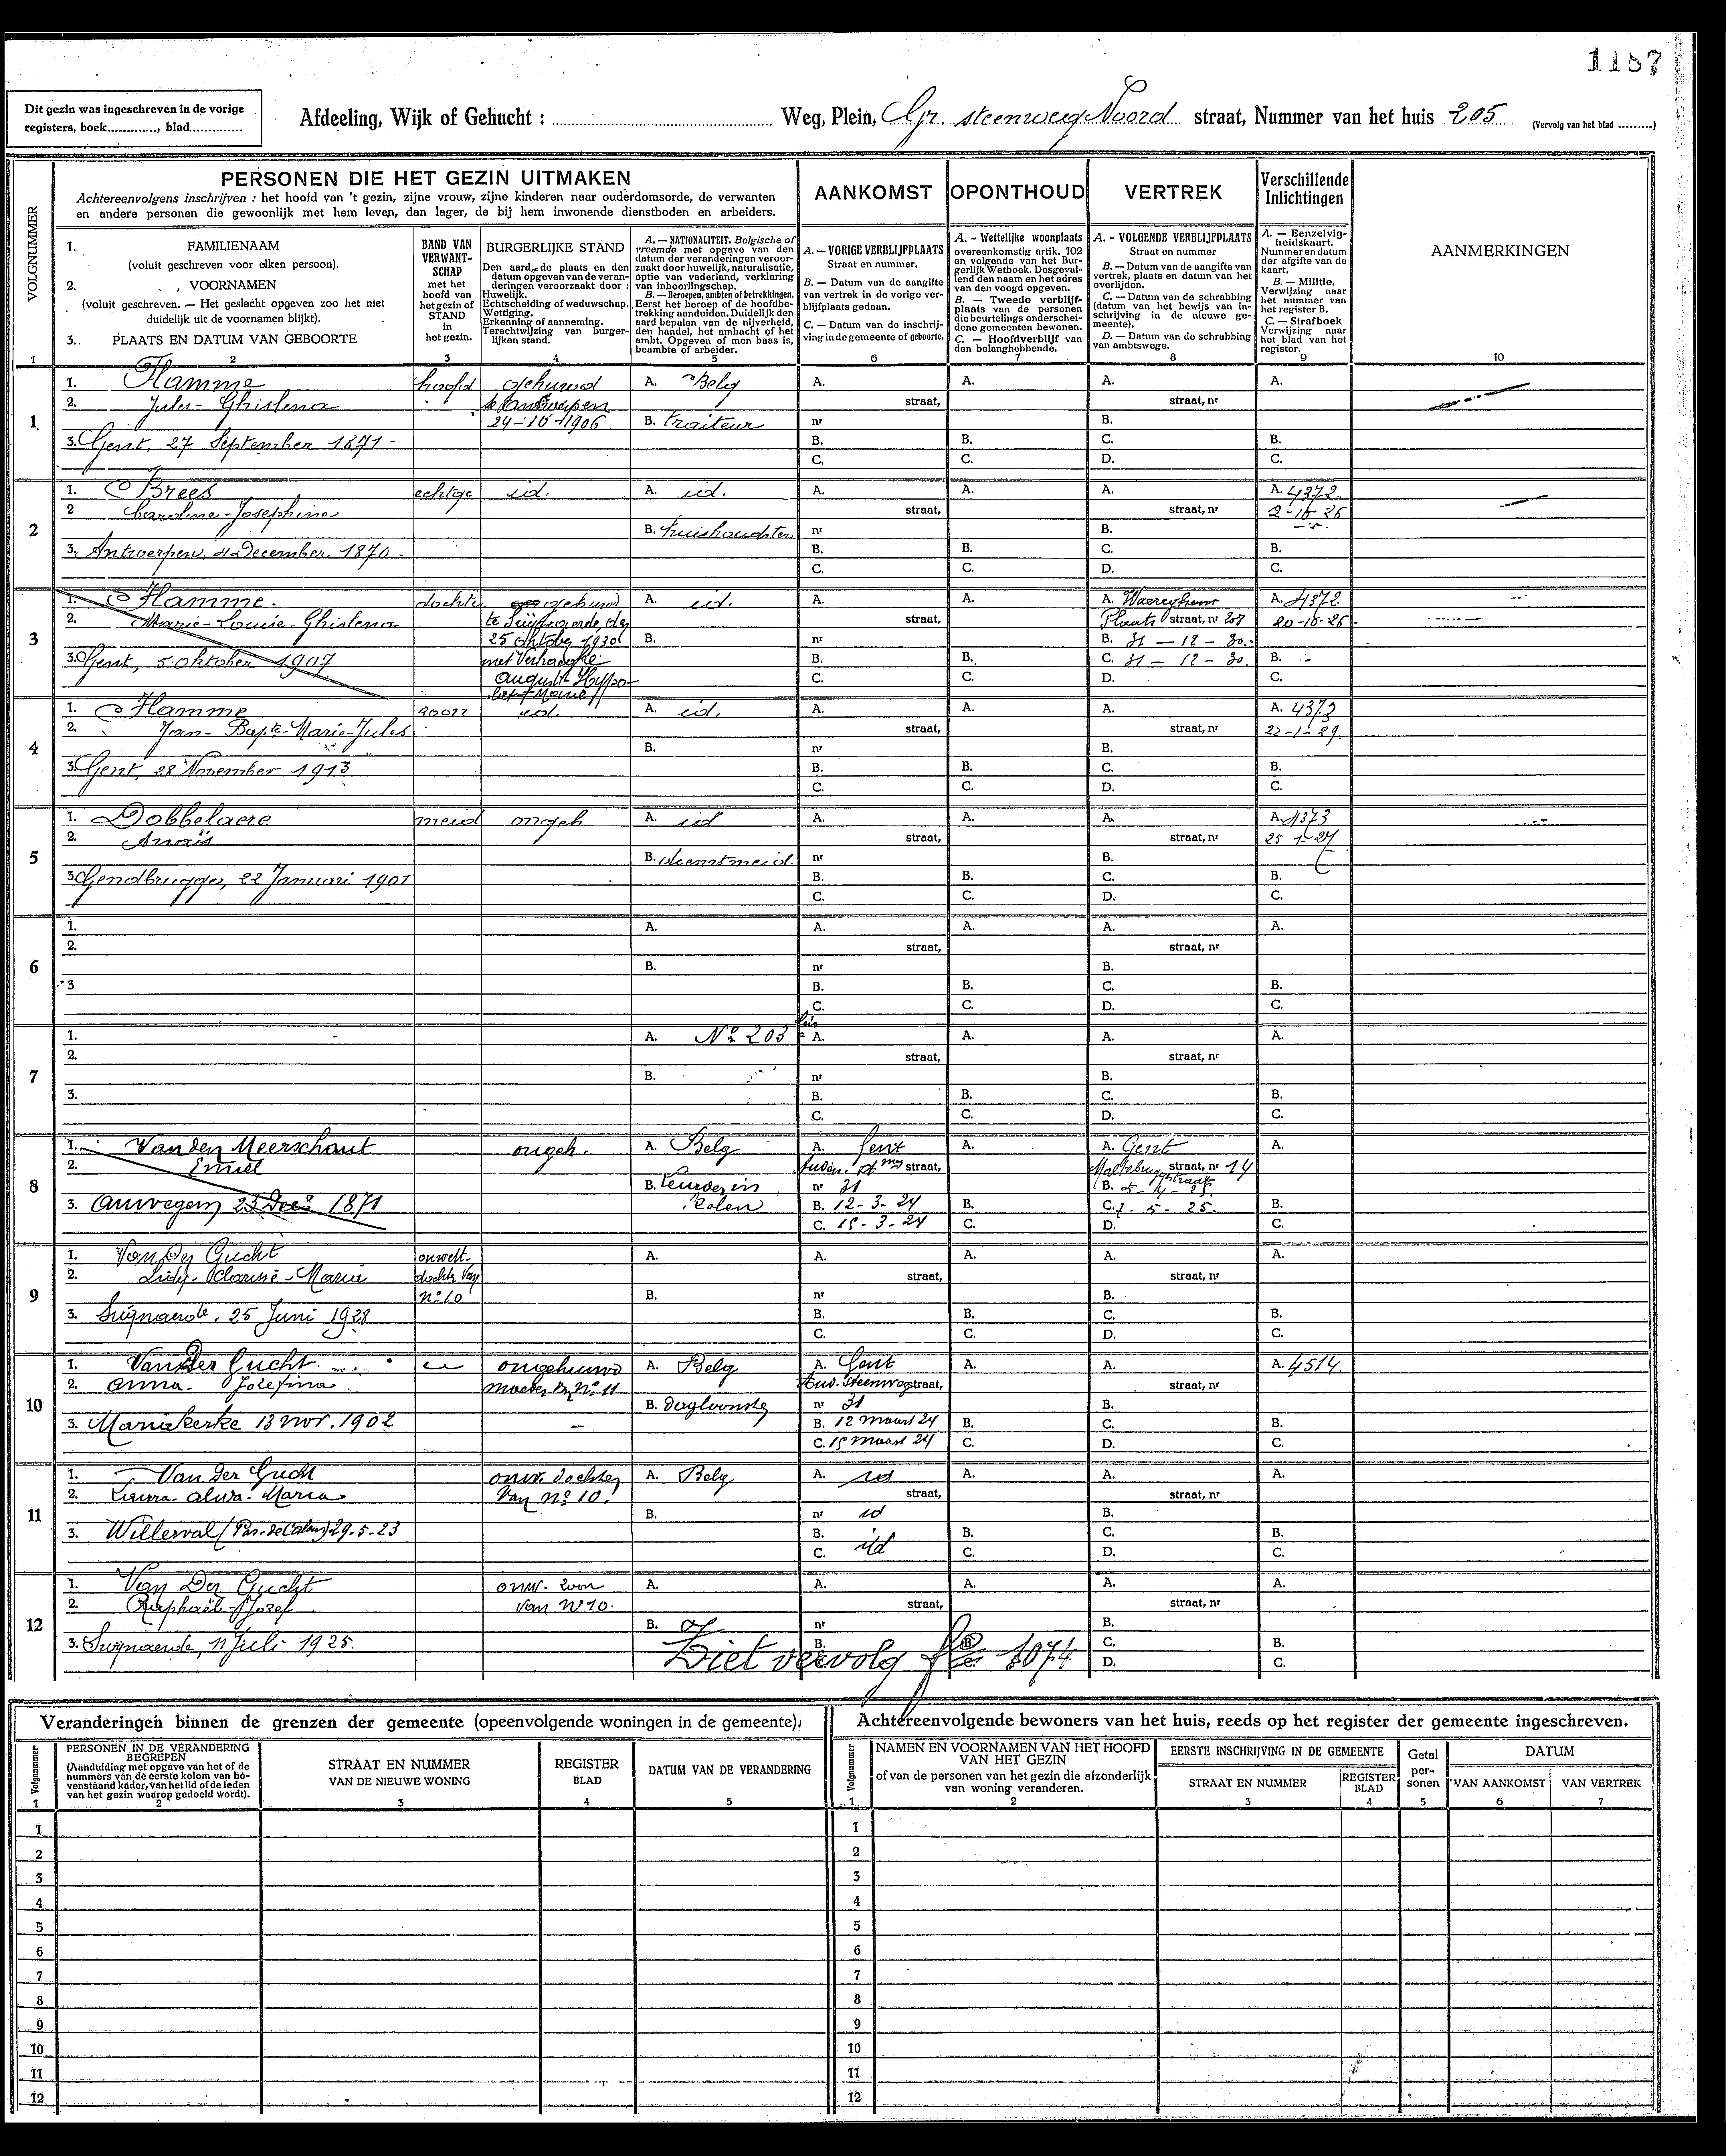 1187
Dit gezin was ingeschreven in de vorige
registers, boek............, blad.............
Afdeeling, Wijk of Gehucht : Weg, Plein, steenweg Noord straat, Nummer van het huis 205 (Vervolg van het blad .........)
VOLGNUMMER
PERSONEN DIE HET GEZIN UITMAKEN
Achtereenvolgens inschrijven : het hoofd van 't gezin, zijne vrouw, zijne kinderen naar ouderdomsorde, de verwanten
en andere personen die gewoonlijk met hem leven, dan lager, de bij hem inwonende dienstboden en arbeiders.
AANKOMST
OPONTHOUD
VERTREK
Verschillende
Inlichtingen
1. FAMILIENAAM
(voluit geschreven voor elken persoon).
2. VOORNAMEN
(voluit geschreven. — Het geslacht opgeven zoo het niet
duidelijk uit de voornamen blijkt).
3. PLAATS EN DATUM VAN GEBOORTE
BAND VAN
VERWANT-
SCHAP
met het
hoofd van
het gezin of
STAND
in
het gezin.
BURGERLIJKE STAND
Den aard, de plaats en den
datum opgeven van de veran-
deringen veroorzaakt door :
Huwelijk.
Echtscheiding of weduwschap.
Wettiging.
Erkenning of aanneming.
Terechtwijzing van burger-
lijken stand.
A. — NATIONALITEIT. Belgische of
vreemde met opgave van den
datum der veranderingen veroor-
zaakt door huwelijk, naturalisatie,
optie van vaderland, verklaring
van inboorlingschap.
B. — Beroepen, ambten of betrekkingen.
Eerst het beroep of de hoofdbe-
trekking aanduiden. Duidelijk den
aard bepalen van de nijverheid,
den handel, het ambacht of het
ambt. Opgeven of men baas is,
beambte of arbeider.
A. — VORIGE VERBLIJFPLAATS
Straat en nummer.
B. — Datum van de aangifte
van vertrek in de vorige ver-
blijfplaats gedaan.
C. — Datum van de inschrij-
ving in de gemeente of geboorte.
A. - Wettelijke woonplaats
overeenkomstig artik. 102
en volgende van het Bur-
gerlijk Wetboek. Desgeval-
lend den naam en het adres
van den voogd opgeven.
B. — Tweede verblijf-
plaats van de personen
die beurtelings onderschei-
dene gemeenten bewonen.
C. — Hoofdverblijf van
den belanghebbende.
A. - VOLGENDE VERBLIJFPLAATS
Straat en nummer
B. — Datum van de aangifte van
vertrek, plaats en datum van het
overlijden.
C. — Datum van de schrabbing
(datum van het bewijs van in-
schrijving in de nieuwe ge-
meente).
D. — Datum van de schrabbing
van ambtswege.
A. — Eenzelvig-
heidskaart.
Nummer en datum
der afgifte van de
kaart.
B. — Militie.
Verwijzing naar
het nummer van
het register B.
C. — Strafboek
Verwijzing naar
het blad van het
register.
AANMERKINGEN
1 2 3 4 5 6 7 8 9 10
1
1. Hamme hoofd gehuwd A. Belg A. A. A. A.
2. Jules - Ghislena te Antwerpen straat, straat, nr
24-10-1906 B. traiteur nr B.
3. Gent, 27 September 1871- B. B. C. B.
C. C. D. C.
2
1. Brees echtge id. A. id. A. A. A. A. 4372
2 Caroline-Josephine straat, straat, nr 2-10-26
B. huishoudster nr B.
3. Antwerpen, 4 December 1870 - B. B. C. B.
C. C. D. C.
3
1. Hamme. dochter gehuwd A. id. A. A. A. Waereghem A. 4372
2. Marie-Louise-Ghislena straat, Plaats straat, nr 208 20-10-26
25 oktober 1930 B. nr B. 31 — 12 — 30.
3. Gent, 5 oktober 1907 met B. B. C. 31 — 12 — 30. B.
August C. C. D. C.
4
1. Hamme zoon id. A. id. A. A. A. A. 4373
2. Jean-Bapte-Marie-Jules straat, straat, nr 22-1-29.
B. nr B.
3. Gent, 28 November 1913 B. B. C. B.
C. C. D. C.
5
1. Dobbelaere meid ongeh A. id A. A. A. A. 4373
2. Anaïs straat, straat, nr 25-1-27
B. dienstmeid. nr B.
3 Gendbrugge, 22 Januari 1901 B. B. C. B.
C. C. D. C.
6
1. A. A. A. A. A.
2. straat, straat, nr
B. nr B.
3 B. B. C. B.
C. C. D. C.
7
1. A. No 203 bis A. A. A. A.
2. straat, straat, nr
B. nr B.
3. B. B. C. B.
C. C. D. C.
8
1. Van den Meerschaut ongeh. A. Belg A. Gent A. A. Gent A.
2. Emiel straat, straat, nr 14
B. Leurder in nr 31 B.
3. 23 1871 Kolen B. 12-3-24 B. C. 1-5-25. B.
C. 15-3-24 C. D. C.
9
1. Van Der Gucht onwett. A. A. A. A. A.
2. Marie dochter van straat, straat, nr
no 10 B. nr B.
3. 25 Juni 1928 B. B. C. B.
C. C. D. C.
10
1. Van Der Gucht ongehuwd A. Belg A. Gent A. A. A. 4514
2. Anna - Jozefina moeder no 11 Aud. Steenweg straat, straat, nr
B. dagloonster nr 31 B.
3. Mariakerke 13 nov. 1902 — B. 12 maart 24 B. C. B.
C. 15 maart 24 C. D. C.
11
1. Van Der Gucht onw. dochter A. Belg A. id A. A. A.
2. Maria van no 10. straat, straat, nr
B. nr id B.
3. Willerval (Pas-de-Calais) 29-5-23 B. B. C. B.
C. id C. D. C.
12
1. Van Der Gucht onw. zoon A. A. A. A. A.
2. Raphaël - Jozef van No 10. straat, straat, nr
B. nr B.
3. 11 Juli 1925. B. B. C. B.
Ziet vervolg 1074 D. C.
Veranderingen binnen de grenzen der gemeente (opeenvolgende woningen in de gemeente).
Volgnummer
PERSONEN IN DE VERANDERING
BEGREPEN
(Aanduiding met opgave van het of de
nummers van de eerste kolom van bo-
venstaand kader, van het lid of de leden
van het gezin waarop gedoeld wordt).
STRAAT EN NUMMER
VAN DE NIEUWE WONING
REGISTER
BLAD
DATUM VAN DE VERANDERING
1 2 3 4 5
1
2
3
4
5
6
7
8
9
10
11
12
Achtereenvolgende bewoners van het huis, reeds op het register der gemeente ingeschreven.
Volgnummer
NAMEN EN VOORNAMEN VAN HET HOOFD
VAN HET GEZIN
of van de personen van het gezin die afzonderlijk
van woning veranderen.
EERSTE INSCHRIJVING IN DE GEMEENTE
STRAAT EN NUMMER
REGISTER
BLAD
Getal
per-
sonen
DATUM
VAN AANKOMST
VAN VERTREK
1 2 3 4 5 6 7
1
2
3
4
5
6
7
8
9
10
11
12